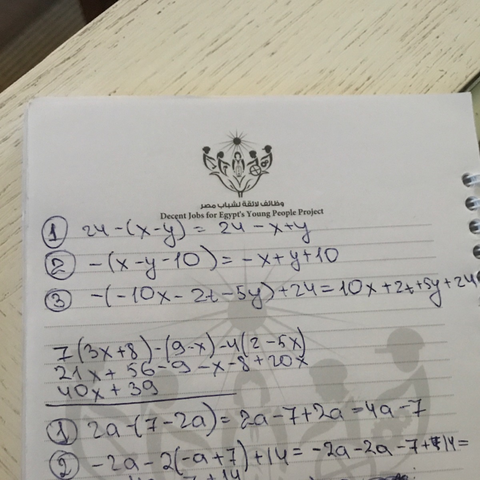 وظائف لائقة لشباب مصر
Decent Jobs for Egypt's Young People Project
① 24-(x-y)= 24-x+y
② -(x-y-10)=-x+y+10
③ -(-10x-2t-5y)+24=10x+2t+5y+24
7(3x+8)-(9-x)-4(2-5x)
21x+56-9-x-8+20x
40x+39
① 2a-(7-2a)=2a-7+2a=4a-7
② -2a-2(-a+7)+14=-2a-2a-7+14=